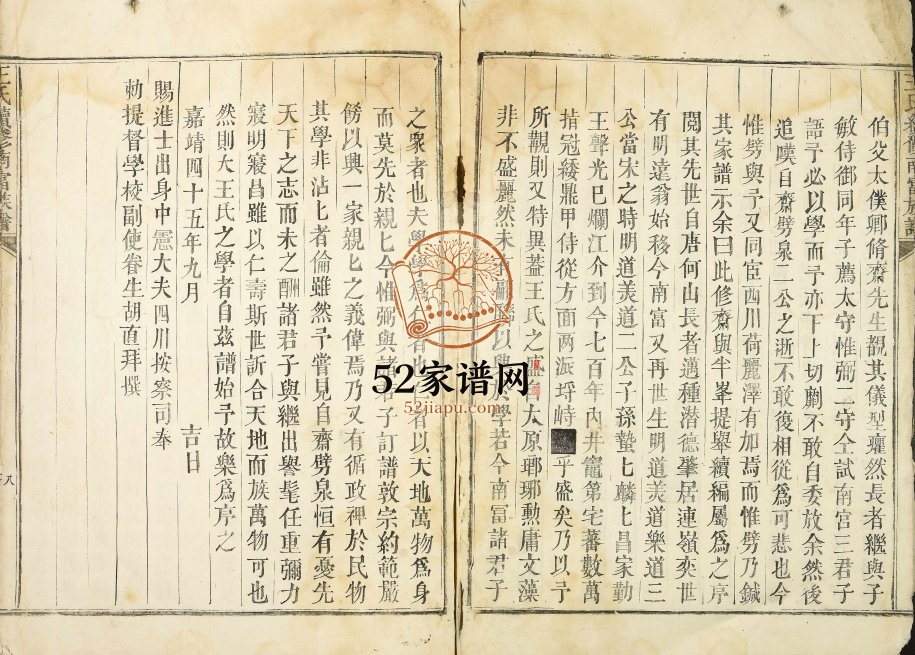 伯父太僕卿脩齋先生覩其儀型瓘然長者繼與子
敏侍御同年子薦太守惟弼二守全試南宫三君子
語予必以學而予亦下上切劘不敢自委放余然後
追嘆自齋劈泉二公之逝不敢復相從爲可悲也今
惟劈與予又同宦西川荷麗澤有加焉而惟劈乃鍼
其家譜示余曰此修齋與半峯提舉續編屬爲之序
閱其先世自唐何山長者邁種潛德肇居連嶺奕世
有明遠翁始移今南富又再世生明道美道樂道三
公當宋之時明道美道二公子孫蟄匕麟匕昌家勤
王聲光已爛江介到今七百年內井竈第宅蕃數萬
指冠緌鼎甲侍從方面兩派埒峙 乎盛矣乃以予
所觀則又特異葢王氏之盛 大原瑯琊勲庸文藻
非不盛麗然未 以 於學若今南富諸君子
之衆者也夫學 爲 者以天地萬物爲身
而莫先於親匕今惟弼與諸君子訂譜敦宗約範嚴
傍以興一家親匕之義偉焉乃又有循政禆於民物
其學非沾匕者倫雖然予嘗見自齋劈泉恒有憂先
天下之志而未之酬諸君子與繼出譽髦任重彌力
寢明寢昌雖以仁壽斯世訢合天地而族萬物可也
然則大王氏之學者自茲譜始予故樂爲序之
嘉靖四十五年九月 吉日
賜進士出身中憲大夫四川按察司奉
勅提督學校副使眷生胡直拜撰
王氏續修南富族譜
八
52家谱网
52jiapu.com